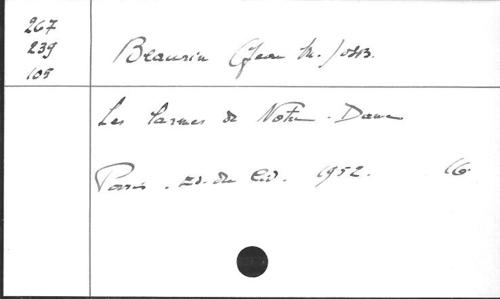 267
239
105
Beaurin (Jean M.) OSB.
Les larmes de Notre-Dame
Paris. Ed. du Cèd. 1952. 16